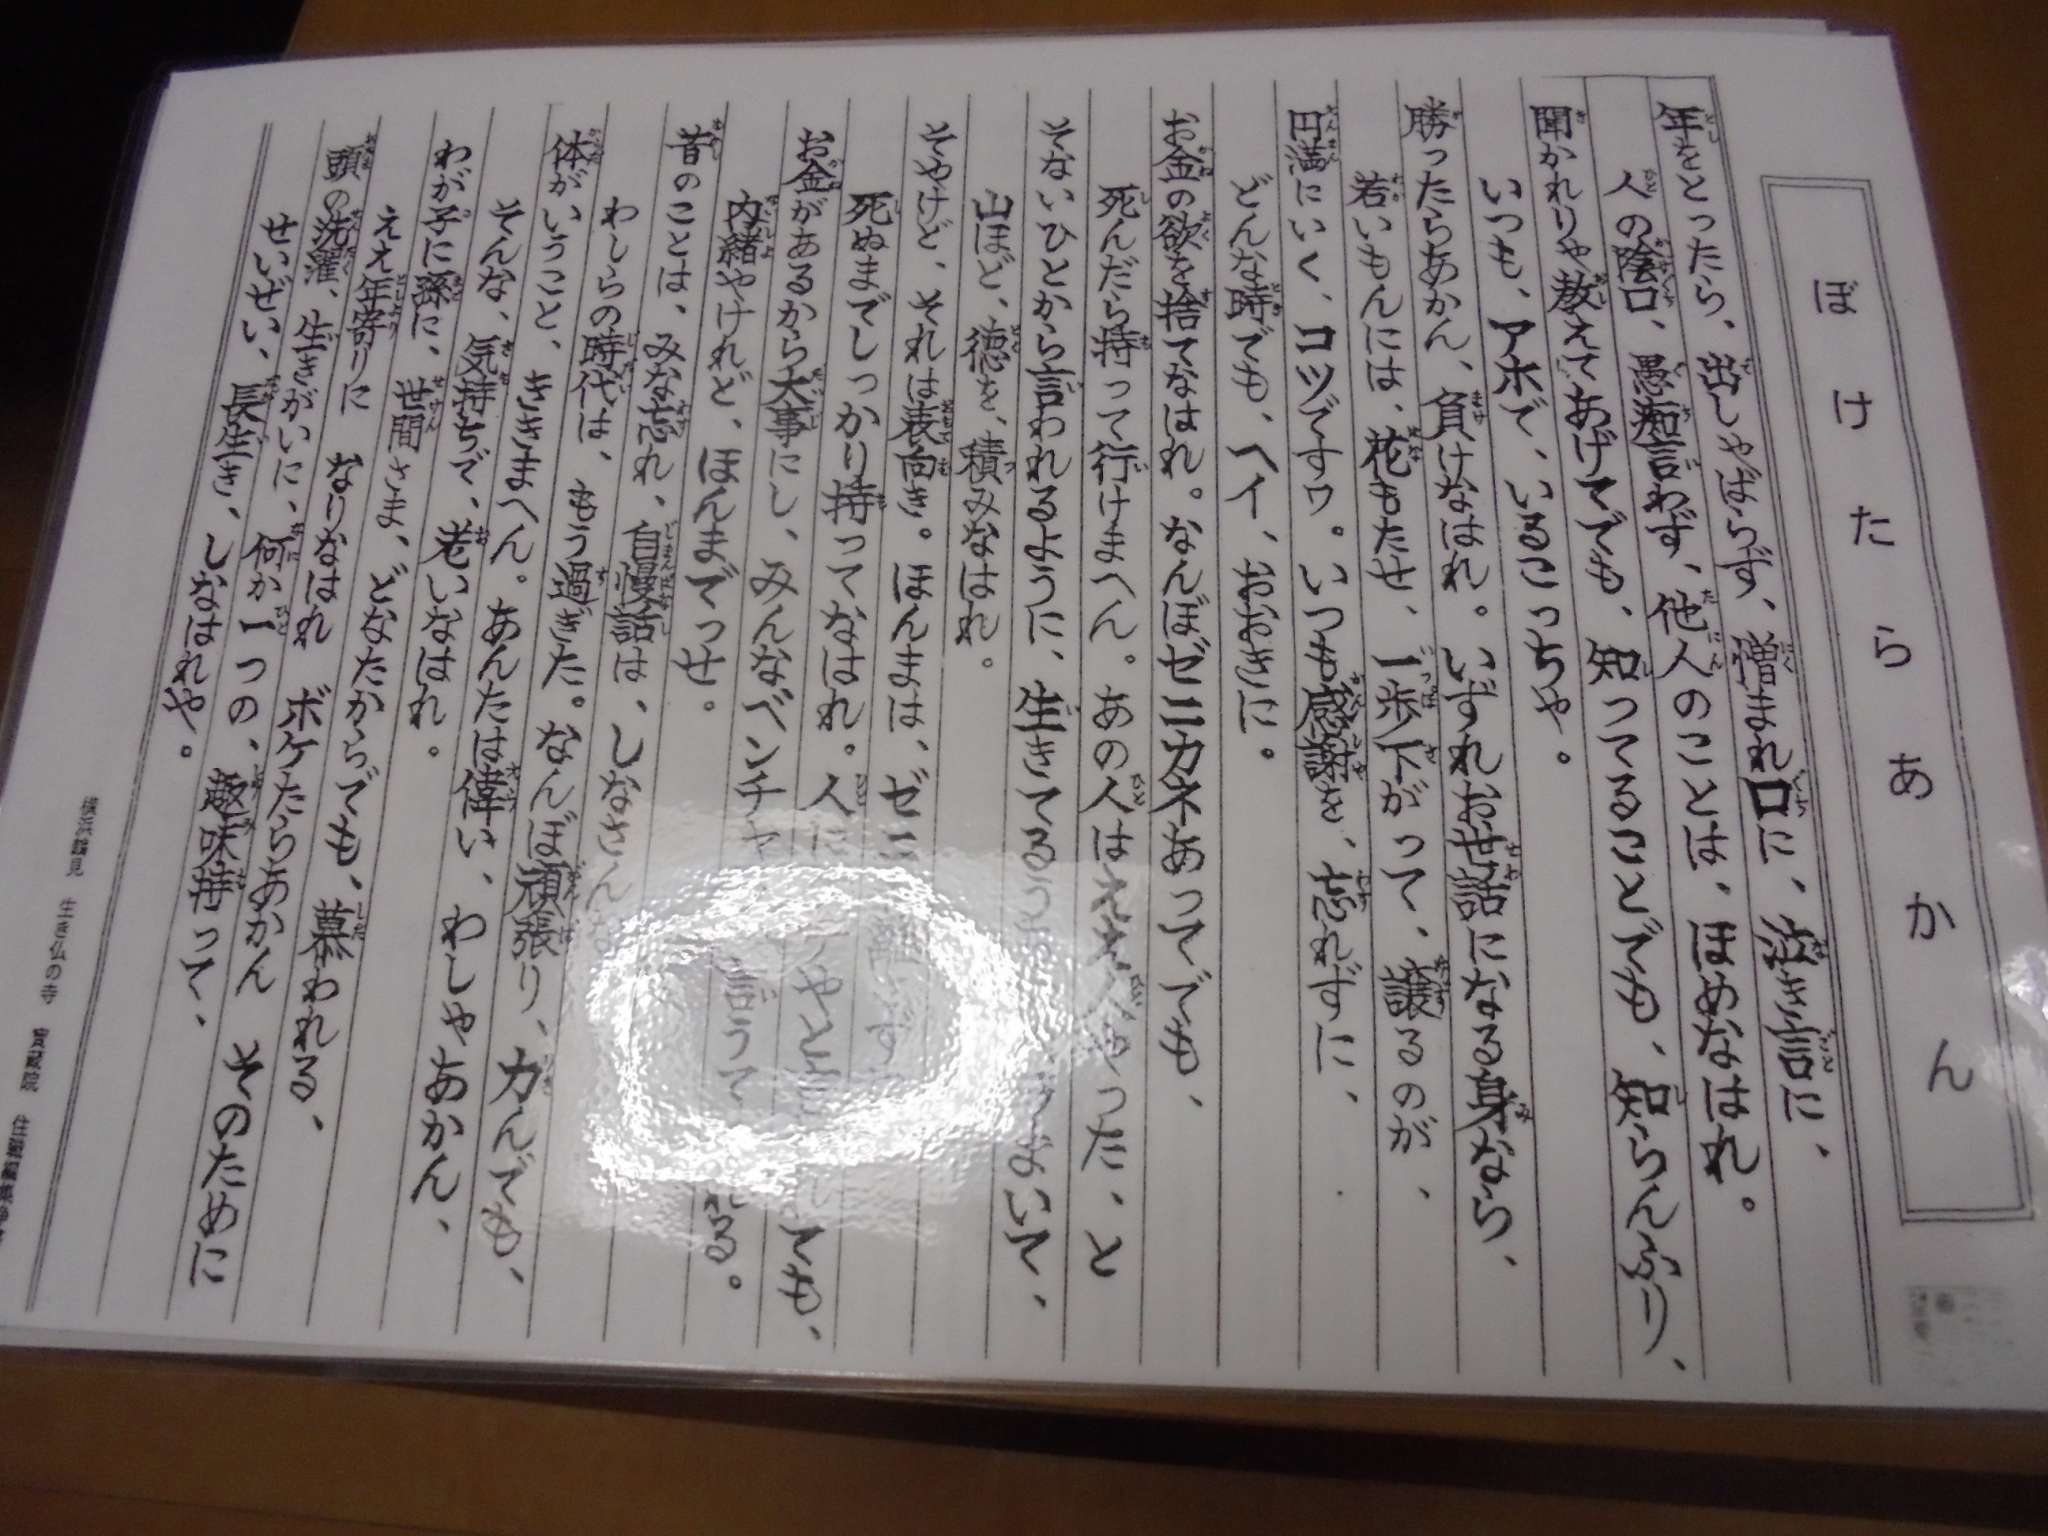 ぼけたらあかん
年をとったら、出しゃばらず、憎まれ口に、泣き言に、
人の陰口、愚痴言わず、他人のことは、ほめなはれ。
聞かれりゃ教えてあげてでも、知ってることでも、知らんふり、
いつも、アホで、いるこっちゃ。
勝ったらあかん、負けなはれ。いずれお世話になる身なら、
若いもんには、花もたせ、一歩下がって、譲るのが、
円満にいく、コツですワ。いつも感謝を、忘れずに、
どんな時でも、ヘイ、おおきに。
お金の欲を捨てなはれ。なんぼゼニカネあってでも、
死んだら持って行けまへん。あの人はええ人やった、と
そないひとから言われるように、生きてるうち
山ほど、徳を、積みなはれ。
そやけど、それは表向き。ほんまは、ゼニ
死ぬまでしっかり持ってなはれ。人に
お金があるから大事にし、みんなベンチャ
内緒やけれど、ほんまでっせ。
昔のことは、みな忘れ、自慢話は、しなさんな
わしらの時代は、もう過ぎた。なんぼ頑張り、力んでも、
体がいうこと、ききまへん。あんたは偉い、わしゃあかん、
そんな、気持ちで、老いなはれ。
わが子に孫に、世間さま、どなたからでも、慕われる、
ええ年寄りに なりなはれ ボケたらあかん そのために
頭の洗濯、生きがいに、何か一つの、趣味持って、
せいぜい、長生き、しなはれや。
横浜鶴見 生き仏の寺